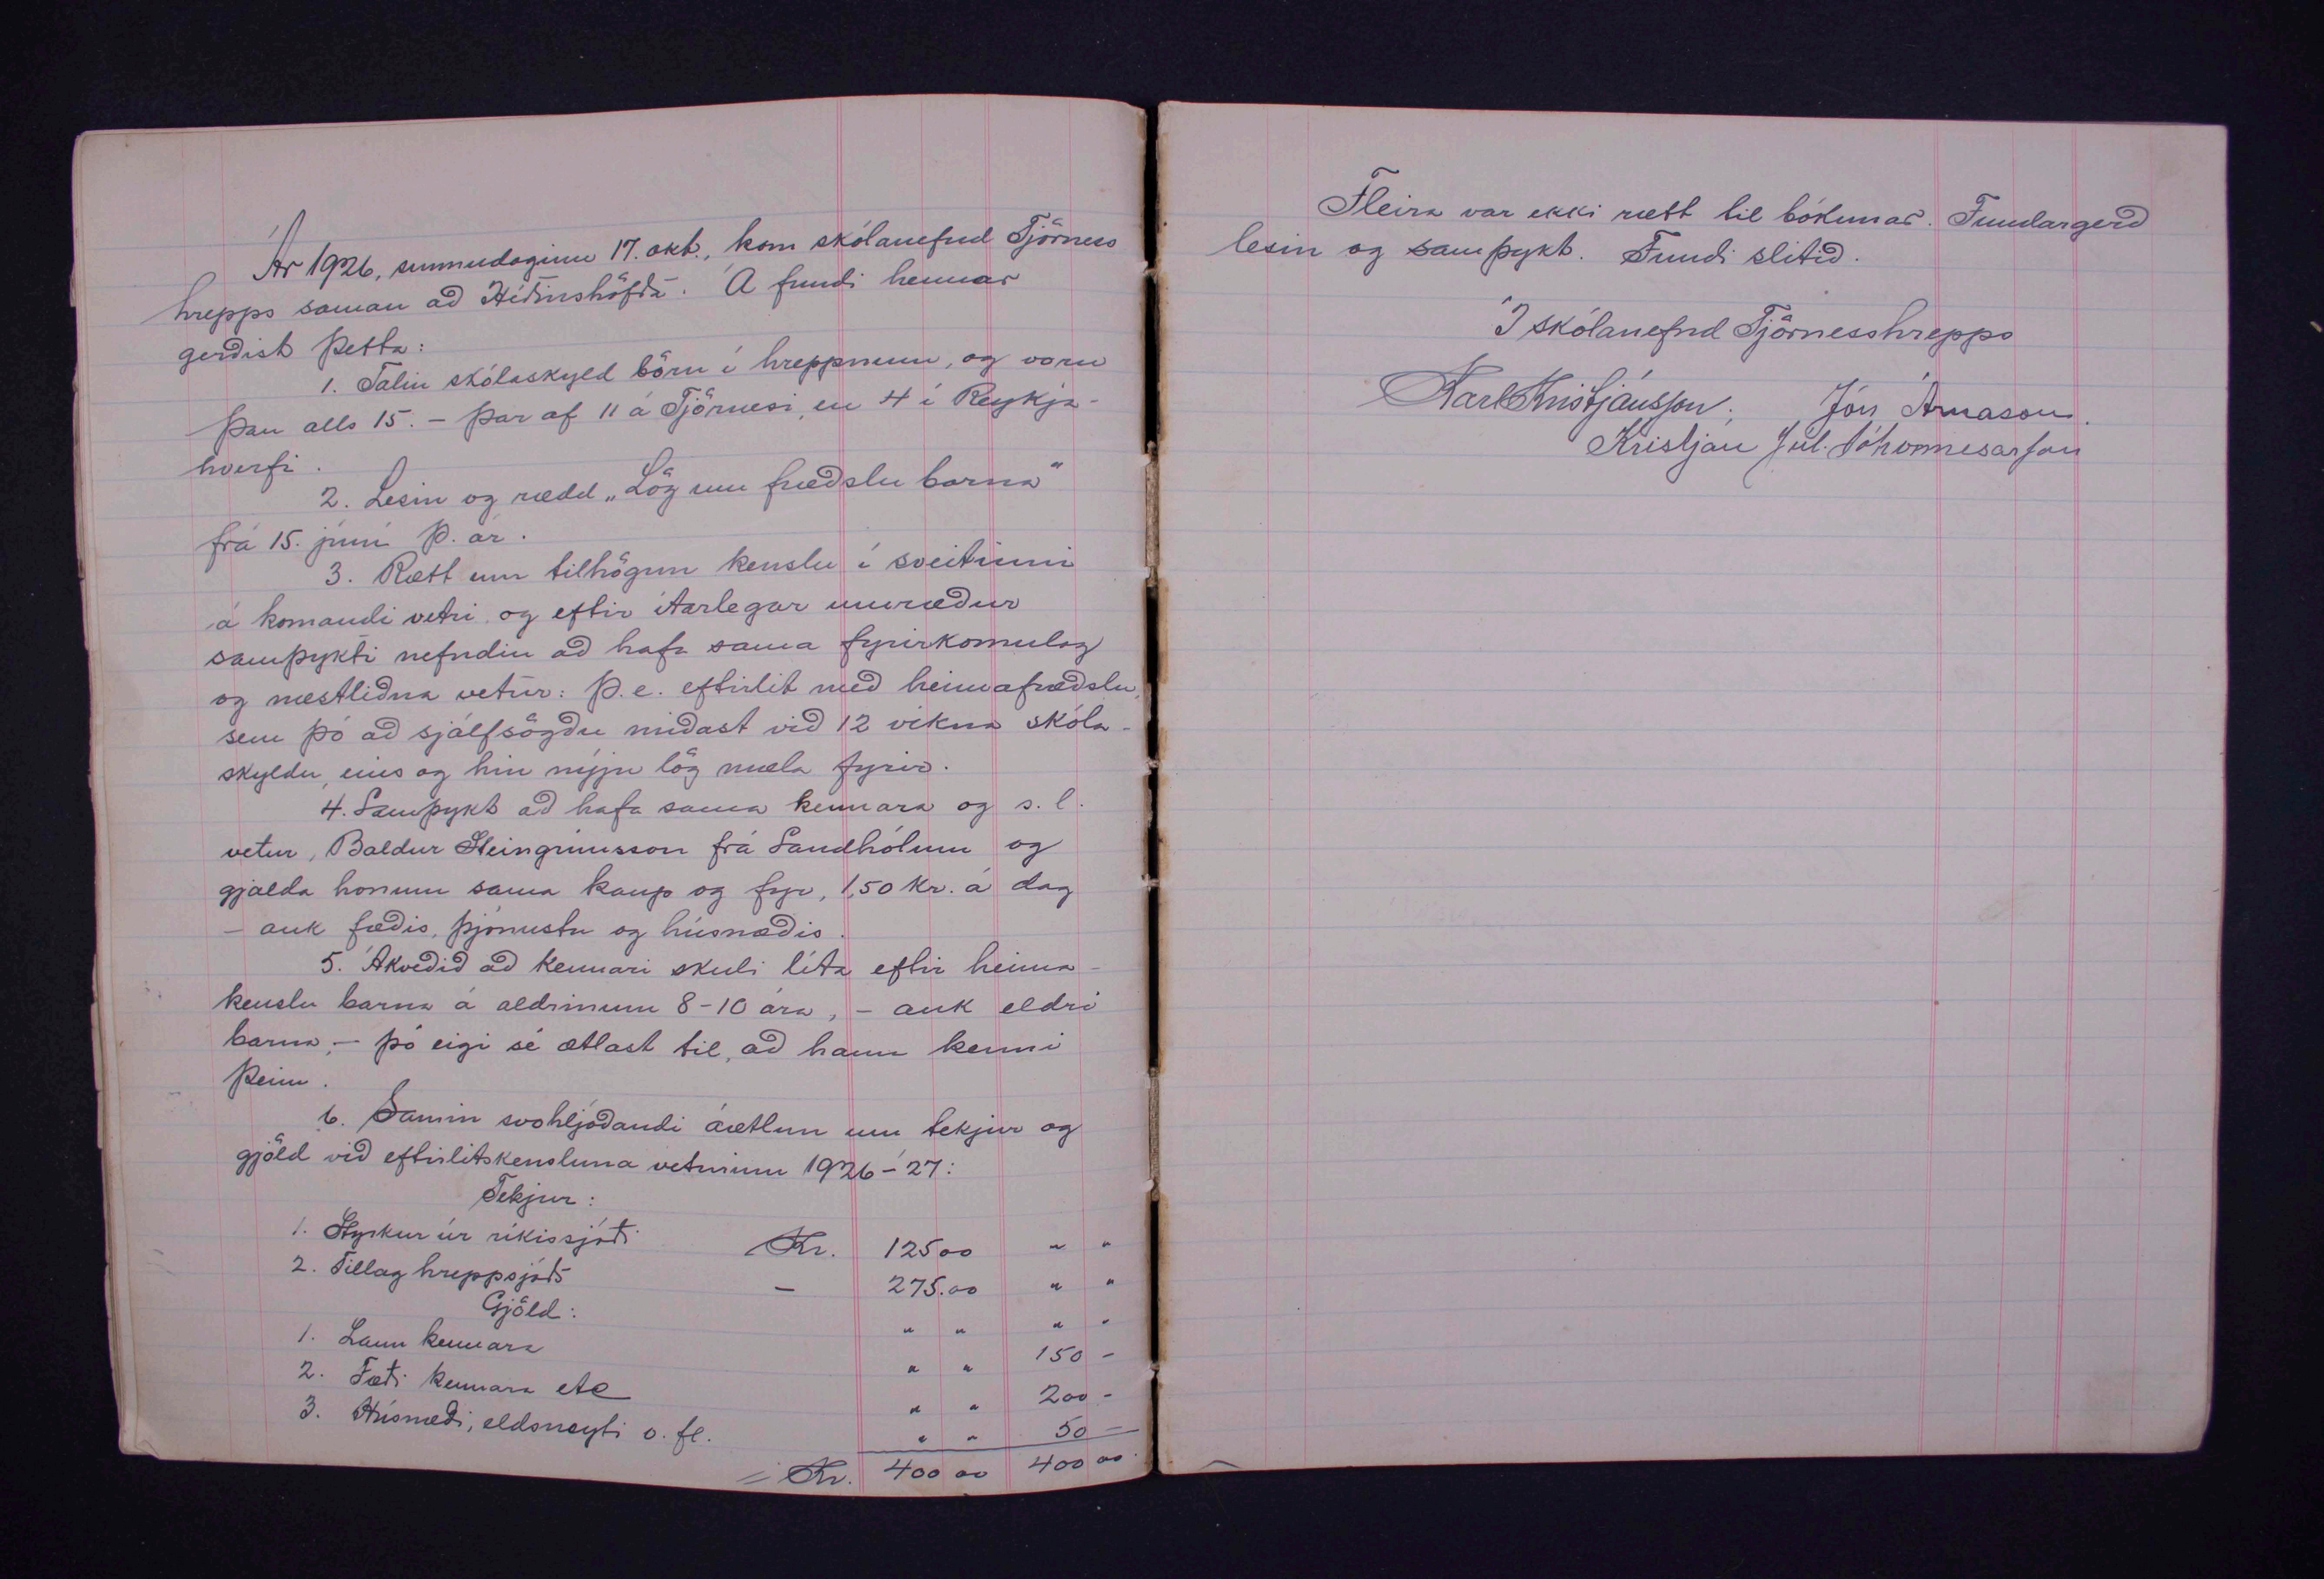 Ár 1926, sunnudaginn 17. okt., kom skólanefnd Tjörness
hrepps saman að Héðinshöfða. Á fundi hennar
gerðist þetta:
1. Talin skólaskyld börn í hreppnum, og voru
þau alls 15. - þar af 11 á Tjörnesi, en 4 í Reykja-
hverfi.
2. Lesin og rædd „Lög um fræðslu barna"
frá 15. júní þ. ár.
3. Rætt um tilhögun kenslu í sveitinni
á komandi vetri og eftir ítarlegar umræður
samþykti nefndin að hafa sama fyrirkomulag
og næstliðna vetur: þ.e. eftirlit með heimafræðslu,
sem þó að sjálfsögðu miðast við 12 vikna skóla-
skyldu, eins og hin nýju lög mæla fyrir.
4. Samþykt að hafa sama kennara og s.l.
vetur, Baldur Steingrímsson frá Sandhólum og
gjalda honum sama kaup og fyr, 1,50 kr. á dag
- auk fæðis, þjónustu og húsnæðis.
5. Ákveðið að kennari skuli líta eftir heima-
kenslu barna á aldrinum 8-10 ára, - auk eldri
barna, - þó eigi sé ætlast til, að hann kenni
þeim.
6. Samin svohljóðandi áætlun um tekjur og
gjöld við eftirlitskensluna veturinn 1926-'27:
Tekjur:
1. Styrkur úr ríkissjóði Kr. 125 00 " "
2. Tillag hreppsjóðs - 275.00 " "
Gjöld: " " " "
1. Laun kennara " " 150 -
2. Fæði kennara etc " " 200 -
3. Húsnæði, eldsneyti o. fl. " " 50 -
= Kr. 400 00 400 00
Fleira var ekki rætt til bókunar. Fundargerð
lesin og samþykt. Fundi slitið.
Í skólanefnd Tjörnesshrepps
Karl Kristjánsson. Jón Árnason.
Kristján Júl. Jóhannesarson